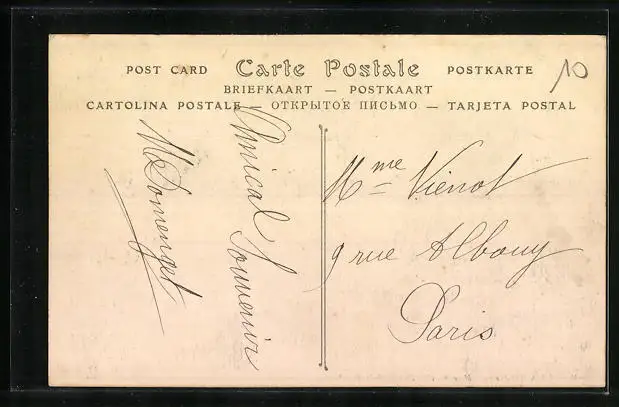 POST CARD Carte Postale POSTKARTE
BRIEFKAART — POSTKAART
CARTOLINA POSTALE — ОТКРЫТОЕ ПИСЬМО — TARJETA POSTAL
10
Amical Souvenir
M Domenget
Mme Viénot
9 rue Albouy
Paris